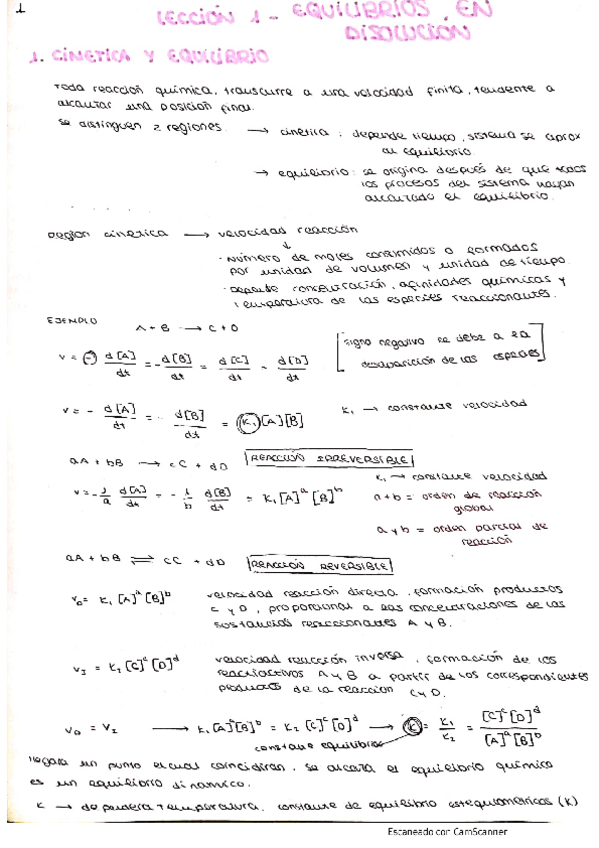 1
LECCIÓN 1 - EQUILIBRIOS EN
DISOLUCIÓN
1. CINÉTICA Y EQUILIBRIO
Toda reacción química, transcurre a una velocidad finita, tendente a
alcanzar una posición final.
Se distinguen 2 regiones → cinética: depende tiempo, sistema se aprox
al equilibrio.
→ equilibrio: se origina después de que todos
los procesos del sistema hayan
alcanzado el equilibrio.
Región cinética → velocidad reacción
↓
· Número de moles consumidos o formados
por unidad de volumen y unidad de tiempo.
· Depende concentración, afinidades químicas y
temperatura de las especies reaccionantes.
EJEMPLO
A + B → C + D
v = - d[A]/dt = - d[B]/dt = d[C]/dt = d[D]/dt
[signo negativo se debe a la
desaparición de las especies]
v = - d[A]/dt = - d[B]/dt = K₁[A][B]
K₁ → constante velocidad
aA + bB → cC + dD REACCIÓN IRREVERSIBLE
K₁ → constante velocidad
v = - 1/a d[A]/dt = - 1/b d[B]/dt = K₁[A]ᵃ[B]ᵇ
a + b = orden de reacción
global
a y b = orden parcial de
reacción
aA + bB ⇌ cC + dD REACCIÓN REVERSIBLE
v_D = K₁[A]ᵃ[B]ᵇ velocidad reacción directa, formación productos
C y D, proporcional a las concentraciones de las
sustancias reaccionantes A y B.
v_I = K₂[C]ᶜ[D]ᵈ velocidad reacción inversa, formación de los
reactivos A y B a partir de los correspondientes
productos de la reacción C y D.
v_D = v_I → K₁[A]ᵃ[B]ᵇ = K₂[C]ᶜ[D]ᵈ → K = K₁/K₂ = [C]ᶜ[D]ᵈ/[A]ᵃ[B]ᵇ
constante equilibrio
llegara un punto el cual coincidiran, se alcanza el equilibrio químico
es un equilibrio dinamico.
K → dependera temperatura. constante de equilibrio estequiometricos (K)
Escaneado con CamScanner